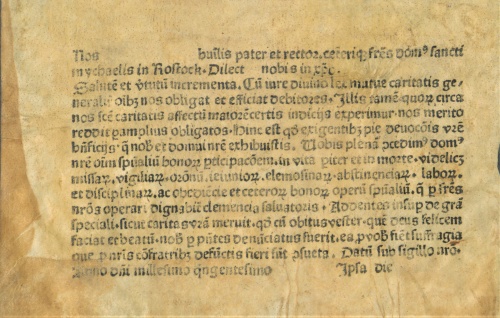 Nos humilis pater et rector, ceteriq; frēs domꝰ sancti
mychaelis in Rostock. Dilect nobis in xp̄o.
Salutē et v̄tutū incrementa. Cū iure diuino lex mutue caritatis ge-
neraliū oībꝫ nos obligat et efficiat debitores. Illis tamē quoꝝ circa
nos sc̄e caritatis affectū maiorē certis indicijs experimur. nos merito
reddit amplius obligatos. Hinc est qđ exigentibꝫ pie deuocōis vr̄e
bn̄ficijs q̄ nob et domui nr̄e exhibuistis. Uobis plenā p̄cedimꝰ domꝰ
nr̄e oīm spūaliū bonoꝝ p̄ticipacōem. in vita p̄iter et in morte. videlicꝫ
missaꝝ. vigiliaꝝ. or̄onū. ieiunioꝝ. elemosinaꝝ. abstinenciaꝝ. laboꝝ.
et disciplinaꝝ. ac obediēcie et ceteroꝝ bonoꝝ operū spūaliū. q̄ p frēs
nr̄os operari dignabit clemencia saluatoris. Addentes insup de gr̄a
speciali. sicut caritas vr̄a meruit. qđ cū obitus vester. quē deus felicem
faciat et beatū. nob p p̄ntes denūciatus fuerit. ea p vob fiēt suffragia
que p nr̄is cōfratribꝫ defūctis fieri sūt p̄sueta. Datū sub sigillo nr̄o.
Anno dn̄i millesimo qngentesimo Ipsa die